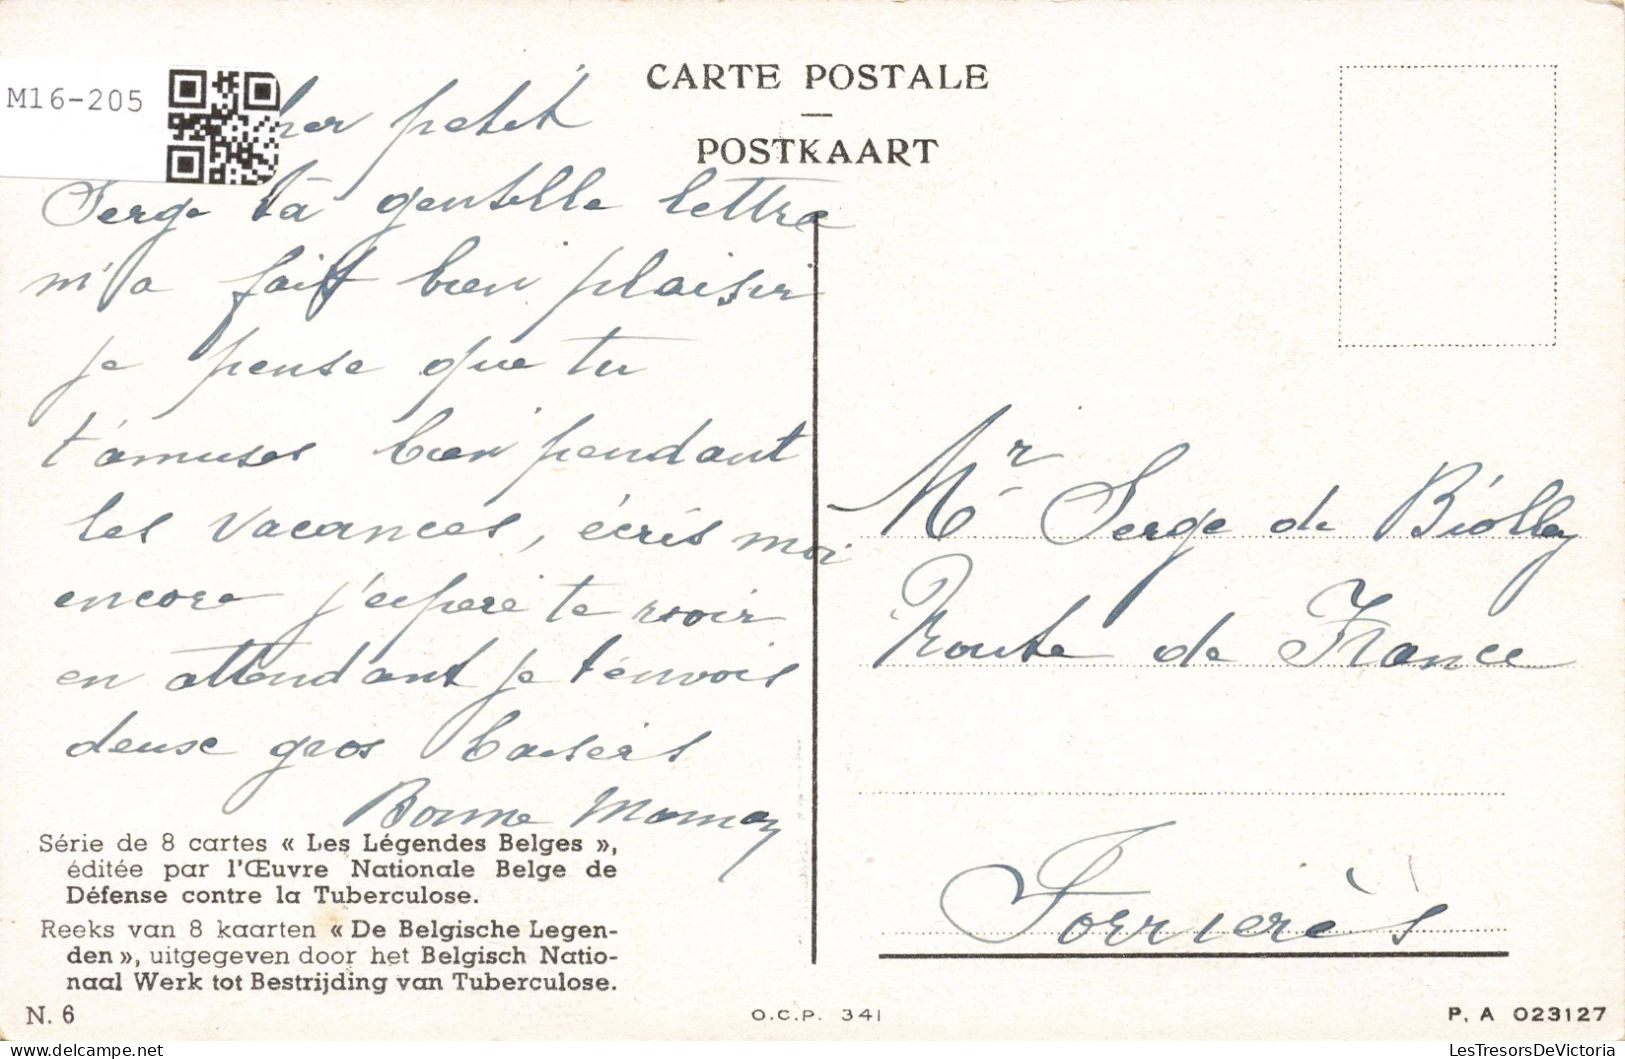 M16-205
CARTE POSTALE
POSTKAART
petit
Serge ta gentille lettre
m'a fait bien plaisir
je pense que tu
t'amuses bien pendant
les vacances, écris moi
encore j'espère te revoir
en attendant je t'envois
deux gros baisers
Bonne Maman
Mr Serge de Biolley
Route de France
Forrières
Série de 8 cartes « Les Légendes Belges »,
éditée par l'Œuvre Nationale Belge de
Défense contre la Tuberculose.
Reeks van 8 kaarten « De Belgische Legen-
den », uitgegeven door het Belgisch Natio-
naal Werk tot Bestrijding van Tuberculose.
N. 6
O.C.P. 341
P. A 023127
LesTresorsDeVictoria